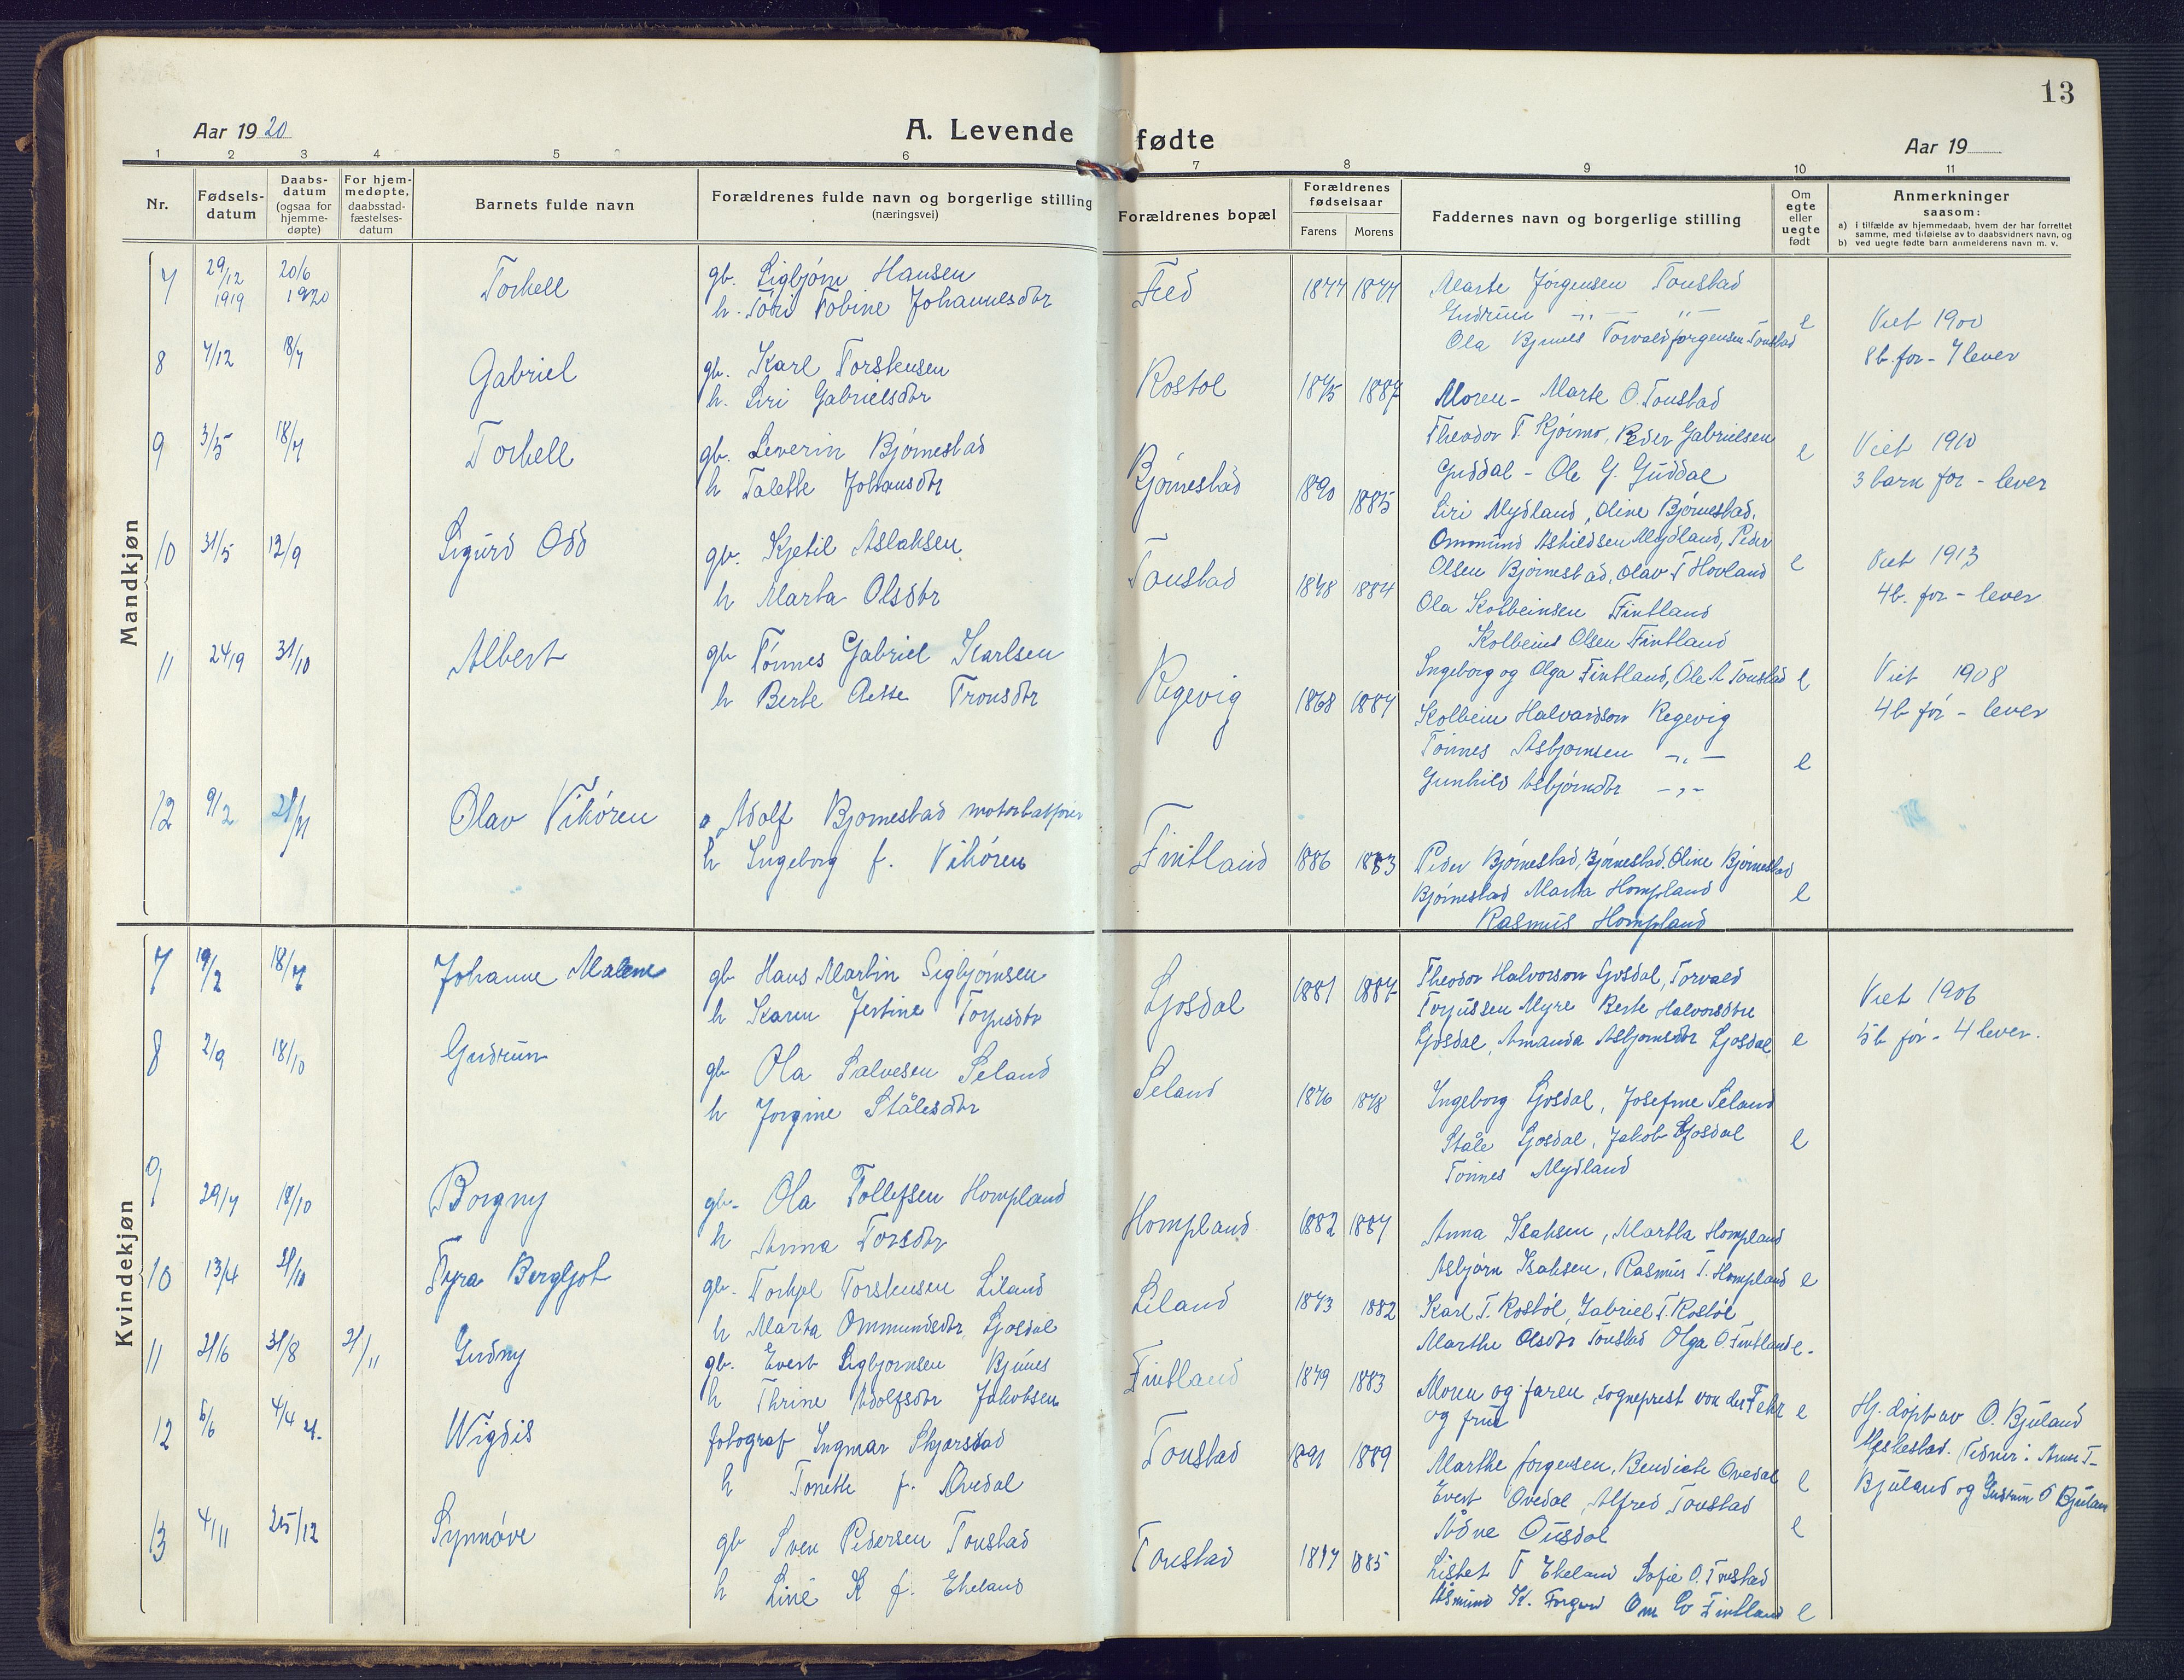 13
Aar 1920
A. Levende fødte
Aar 19
1 2 3 4 5 6 7 8 9 10 11
Nr.
Fødsels-
datum
Daabs-
datum
(ogsaa for
hjemme-
døpte)
For hjem-
medøpte,
daabsstad-
fæstelses-
datum
Barnets fulde navn
Forældrenes fulde navn og borgerlige stilling
(næringsvei)
Forældrenes bopæl
Forældrenes
fødselsaar
Farens Morens
Faddernes navn og borgerlige stilling
Om
egte
eller
uegte
født
Anmerkninger
saasom:
a) I tilfælde av hjemmedaab, hvem der har forrettet
samme, med tilføielse av to daabsvidners navn, og
b) ved uegte fødte barn anmelderens navn m. v.
Mandkjøn
7 29/12 1919 20/6 1920 Torkell
gb. Sigbjørn Hansen
h. Tori Tobine Johannesdtr
1877 1877
Marte Jørgensen Tonstad
Gudrun -"- -"-
Ola Bjunes Torvald Jørgensen Tonstad
e
Viet 1900
8 b. før - 7 lever
8 7/12 18/7 Gabriel
gb. Karl Torskeusen
h. Siri Gabrielsdtr
Rostøl 1875 1887
Moren - Marte O. Tonstad
Theodor T. Kjørmo, Peder Gabrielsen
Guddal - Ole G. Guddal
e
Viet 1910
3 barn før - lever
9 3/5 18/7 Torkell
gb. Severin Bjørnestad
h Talette Johansdtr
Bjørnestad 1890 1885
Siri Mydland, Oline Bjørnestad,
Ommund Askildsen Mydland, Peder
Olsen Bjørnestad, Olav T Hovland
e
Viet 1913
4 b. før - lever
10 31/5 12/9 Sigurd Odd
gb. Kjetil Aslaksen
h Marta Olsdtr
Tonstad 1878 1884
Ola Kolbeinsen Fintland
Kolbeins Olsen Fintland
Ingeborg og Olga Fintland, Ole A Tonstad e
Viet 1908
4 b før - lever
11 24/9 31/10 Albert
gb Tønnes Gabriel Karlsen
h Berte Tronsdtr
Regevig 1868 1887
Kolbein Halvardson Regevig
Tønnes Asbjørnsen -"-
Gunhild Asbjørndtr -"-
e
12 9/2 21/11 Olav Vikøren
Adolf Bjørnestad motorbatfører
h Ingeborg f. Vikøren
Fintland 1886 1883
Peder Bjørnestad, Bjørnestad. Oline Bjørnestad
Bjørnestad Marta Hompland
Rasmus Hompland
e
Kvindekjøn
7 19/2 18/7 Johanne Malene
gb Hans Martin Sigbjørnsen
h Karen Jertine Torjusdtr
Ljosdal 1881 1884
Theodor Halvorson Ljosdal, Torvald
Torjussen Myre Berte Halvorsdtre
Ljosdal, Amanda Asbjornsdtr Ljosdal e
Viet 1906
5 b før - 4 lever.
8 2/9 18/10 Gudrun
gb Ola Salvesen Seland
h Jorgine Stålesdtr
Seland 1876 1878
Ingeborg Ljosdal, Josefine Seland
Ståle Ljosdal, Jakob Ljosdal
Tonnes Mydland
e
9 29/7 18/10 Borgny
gb. Ola Tollefsen Hompland
h Anna Torsdtr
Hompland 1882 1887
Anna Isaksen, Martha Hompland
Asbjørn Isaksen, Rasmus T. Hompland e
10 13/4 21/10 Tyra Bergljot
gb. Torkjel Torskeusen Liland
h Marta Ommundsdtr, Ljosdal
Liland 1873 1882
Karl T. Rostøl, Gabriel T. Rostøl
Marthe Olsdtr Tonstad Olga O. Fintland e.
11 21/6 31/8 21/11 Gudny
gb. Evert Sigbjornsen Bjunes
h Thrine Adolfsdtr Jakobsen
Fintland 1879 1883
Moren og faren sogneprest von der Fehr
og frue
e
Hj. døpt av O. Bjuland
Heskestad. Vidner: Anne T-
Bjuland og Gudrun O Bjulan
12 5/6 4/4 21. Wigdis
fotograf Ingmar Skjærstad
h Tonette f. Øvedal
Tonstad 1891 1889
Marthe Jorgensen, Bendicte Ovedal
Evert Ovedal, Alfred Tonstad
Ådne Ousdal
e
13 4/11 25/12 Synnøve
gb Sven Pedersen Tonstad
h Line K f. Ekeland
Tonstad 1877 1885
Lisbet T Ekeland Sofie O. Tonstad
Åsmund K. Om Ev Fintland e